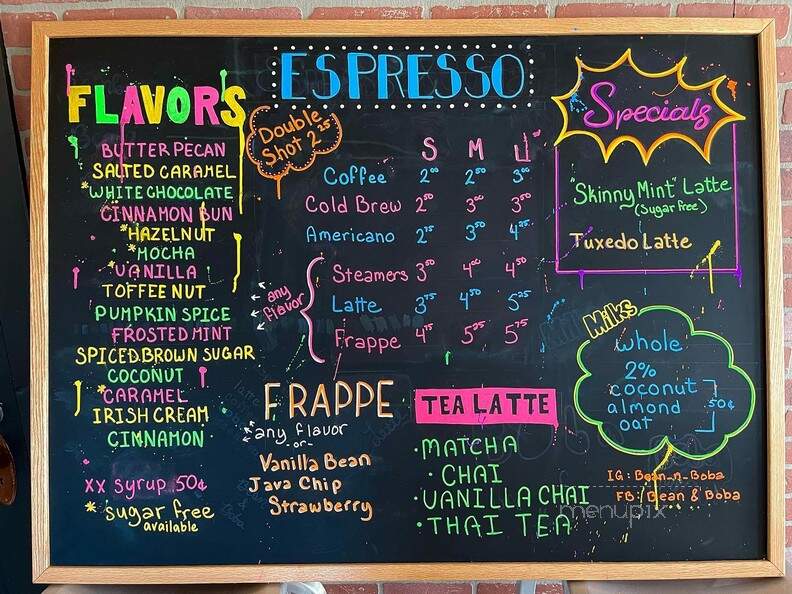 FLAVORS
BUTTER PECAN
SALTED CARAMEL
*WHITE CHOCOLATE
CINNAMON BUN
*HAZELNUT
*MOCHA
*VANILLA
TOFFEE NUT
PUMPKIN SPICE
FROSTED MINT
SPICED BROWN SUGAR
COCONUT
*CARAMEL
IRISH CREAM
CINNAMON
xx syrup 50¢
*sugar free
available
ESPRESSO
Double
Shot 2.25
S M L
Coffee 2.00 2.50 3.00
Cold Brew 2.50 3.00 3.50
Americano 2.75 3.50 4.25
any
flavor
Steamers 3.50 4.00 4.50
Latte 3.75 4.50 5.25
Frappe 4.75 5.25 5.75
FRAPPE
*any flavor
-or-
Vanilla Bean
Java Chip
Strawberry
TEA LATTE
·MATCHA
·CHAI
·VANILLA CHAI
·THAI TEA
Specials
"Skinny Mint" Latte
(Sugar free)
Tuxedo Latte
Milks
whole
2%
coconut
almond 50¢
oat
IG: Bean_n_Boba
FB: Bean & Boba
menupix